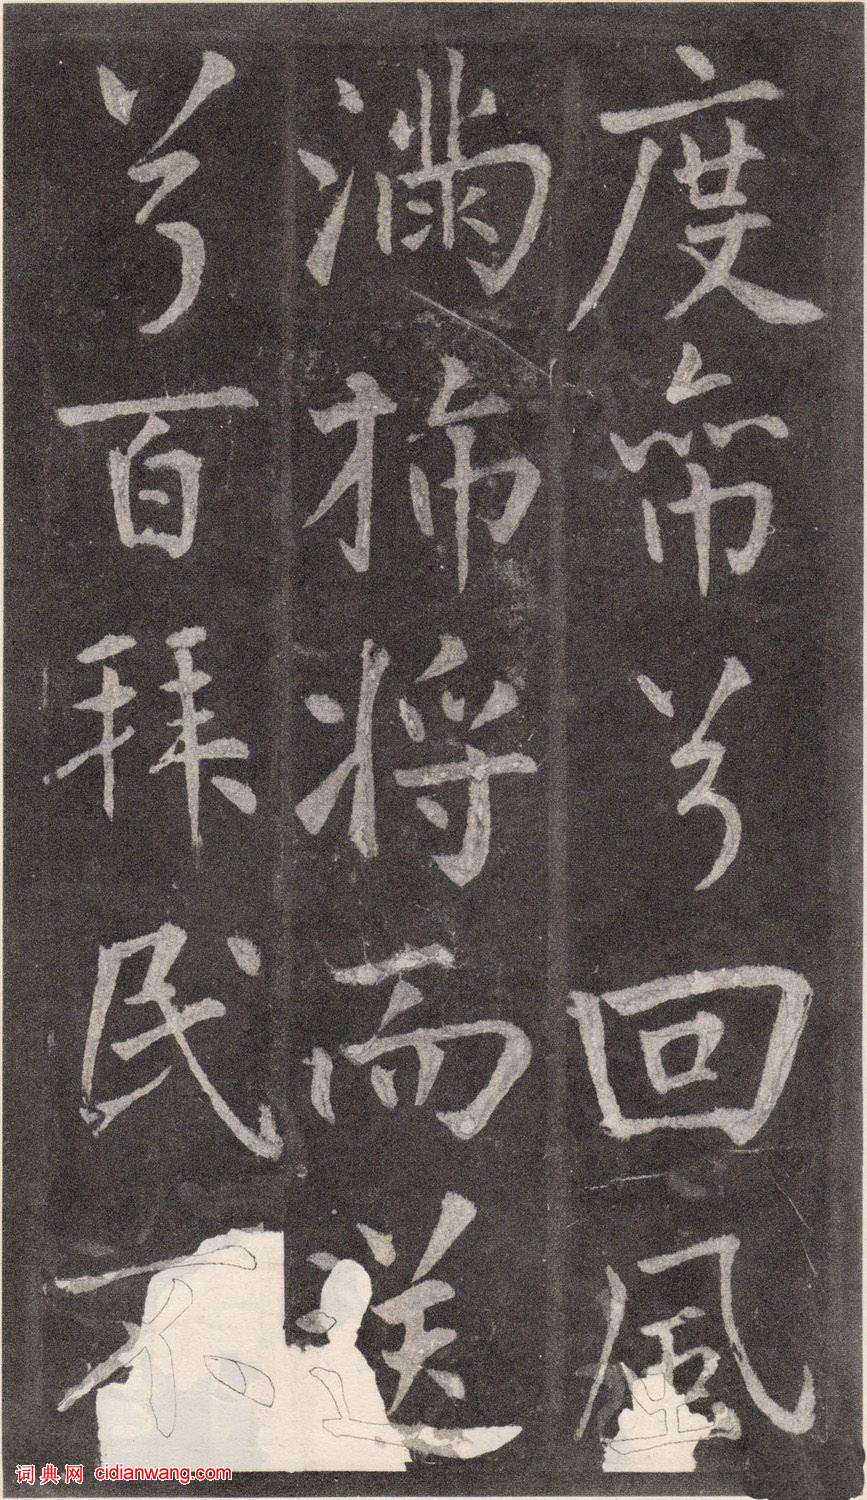 度帝兮回風
滿將而送
兮百拜民不
词典网 cidianwang.com